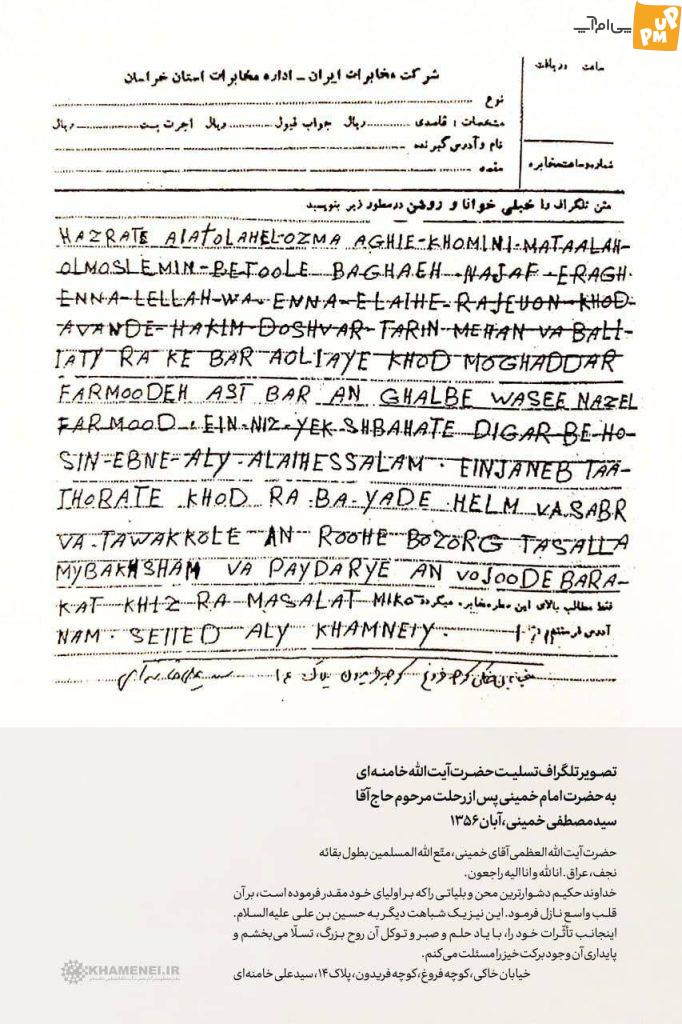 پی‌ام‌آپ
PM UP
شرکت مخابرات ایران - اداره مخابرات استان خراسان
ساعت دریافت
نوع
مشخصات : قاصدی ریال جواب قبول ریال اجرت پست ریال
نام و آدرس گیرنده
مقصد
شماره و ساعت مخابره
متن تلگراف را خیلی خوانا و روشن در سطور زیر بنویسید
HAZRATE AIATOLAHEL-OZMA AGHIE-KHOMINI-MATAALAH-
OLMOSLEMIN-BETOOLE BAGHAEH-NAJAF-ERAGH.
ENNA-LELLAH-WA-ENNA-ELAIHE-RAJEUON-KHOD-
AVANDE-HAKIM-DOSHVAR-TARIN-MEHAN VA BALI-
IATY RA KE BAR AOLIAYE KHOD MOGHADDAR
FARMOODEH AST BAR AN GHALBE WASEE NAZEL
FARMOOD.EIN-NIZ-YEK-SHBAHATE DIGAR-BE-HO-
SIN-EBNE-ALY-ALAIHESSALAM. EINJANEB TAA-
THORATE KHOD RA-BA-YADE HELM VA SABR
VA-TAWAKKOLE AN ROOHE BOZORG TASALLA
MYBAKHSHAM VA PAYDARYE AN VOJOODE BARA-
KAT KHIZ RA MASALAT MIKO فقط مطالب بالای این سطر مخابره میگردد
NAM. SEIIED ALY KHAMNEIY. آدرس فرستنده
تصویر تلگراف تسلیت حضرت آیت‌الله خامنه‌ای
به حضرت امام خمینی پس از رحلت مرحوم حاج آقا
سید مصطفی خمینی، آبان ۱۳۵۶
حضرت آیت الله العظمی آقای خمینی، متّع الله المسلمین بطول بقائه
نجف، عراق. انالله وانا الیه راجعون.
خداوند حکیم دشوارترین محن و بلیاتی را که بر اولیای خود مقدر فرموده است، بر آن
قلب واسع نازل فرمود. این نیز یک شباهت دیگر به حسین بن علی علیه‌السلام.
اینجانب تأثّرات خود را، با یاد حلم و صبر و توکل آن روح بزرگ، تسلّا می‌بخشم و
پایداری آن وجود برکت خیز را مسئلت می‌کنم.
خیابان خاکی، کوچه فروغ، کوچه فریدون، پلاک ۱۴، سیدعلی خامنه‌ای
KHAMENEI.IR